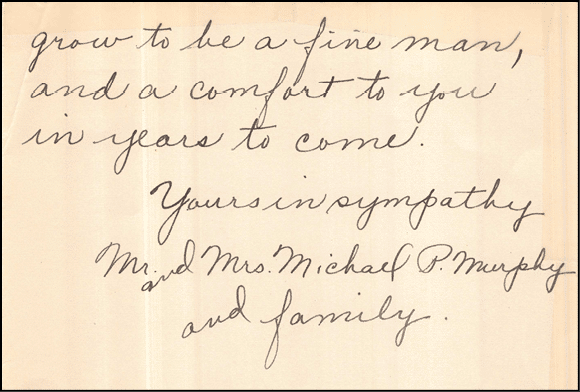 grow to be a fine man,
and a comfort to you
in years to come.
Yours in sympathy
Mr. and Mrs. Michael P. Murphy
and family.